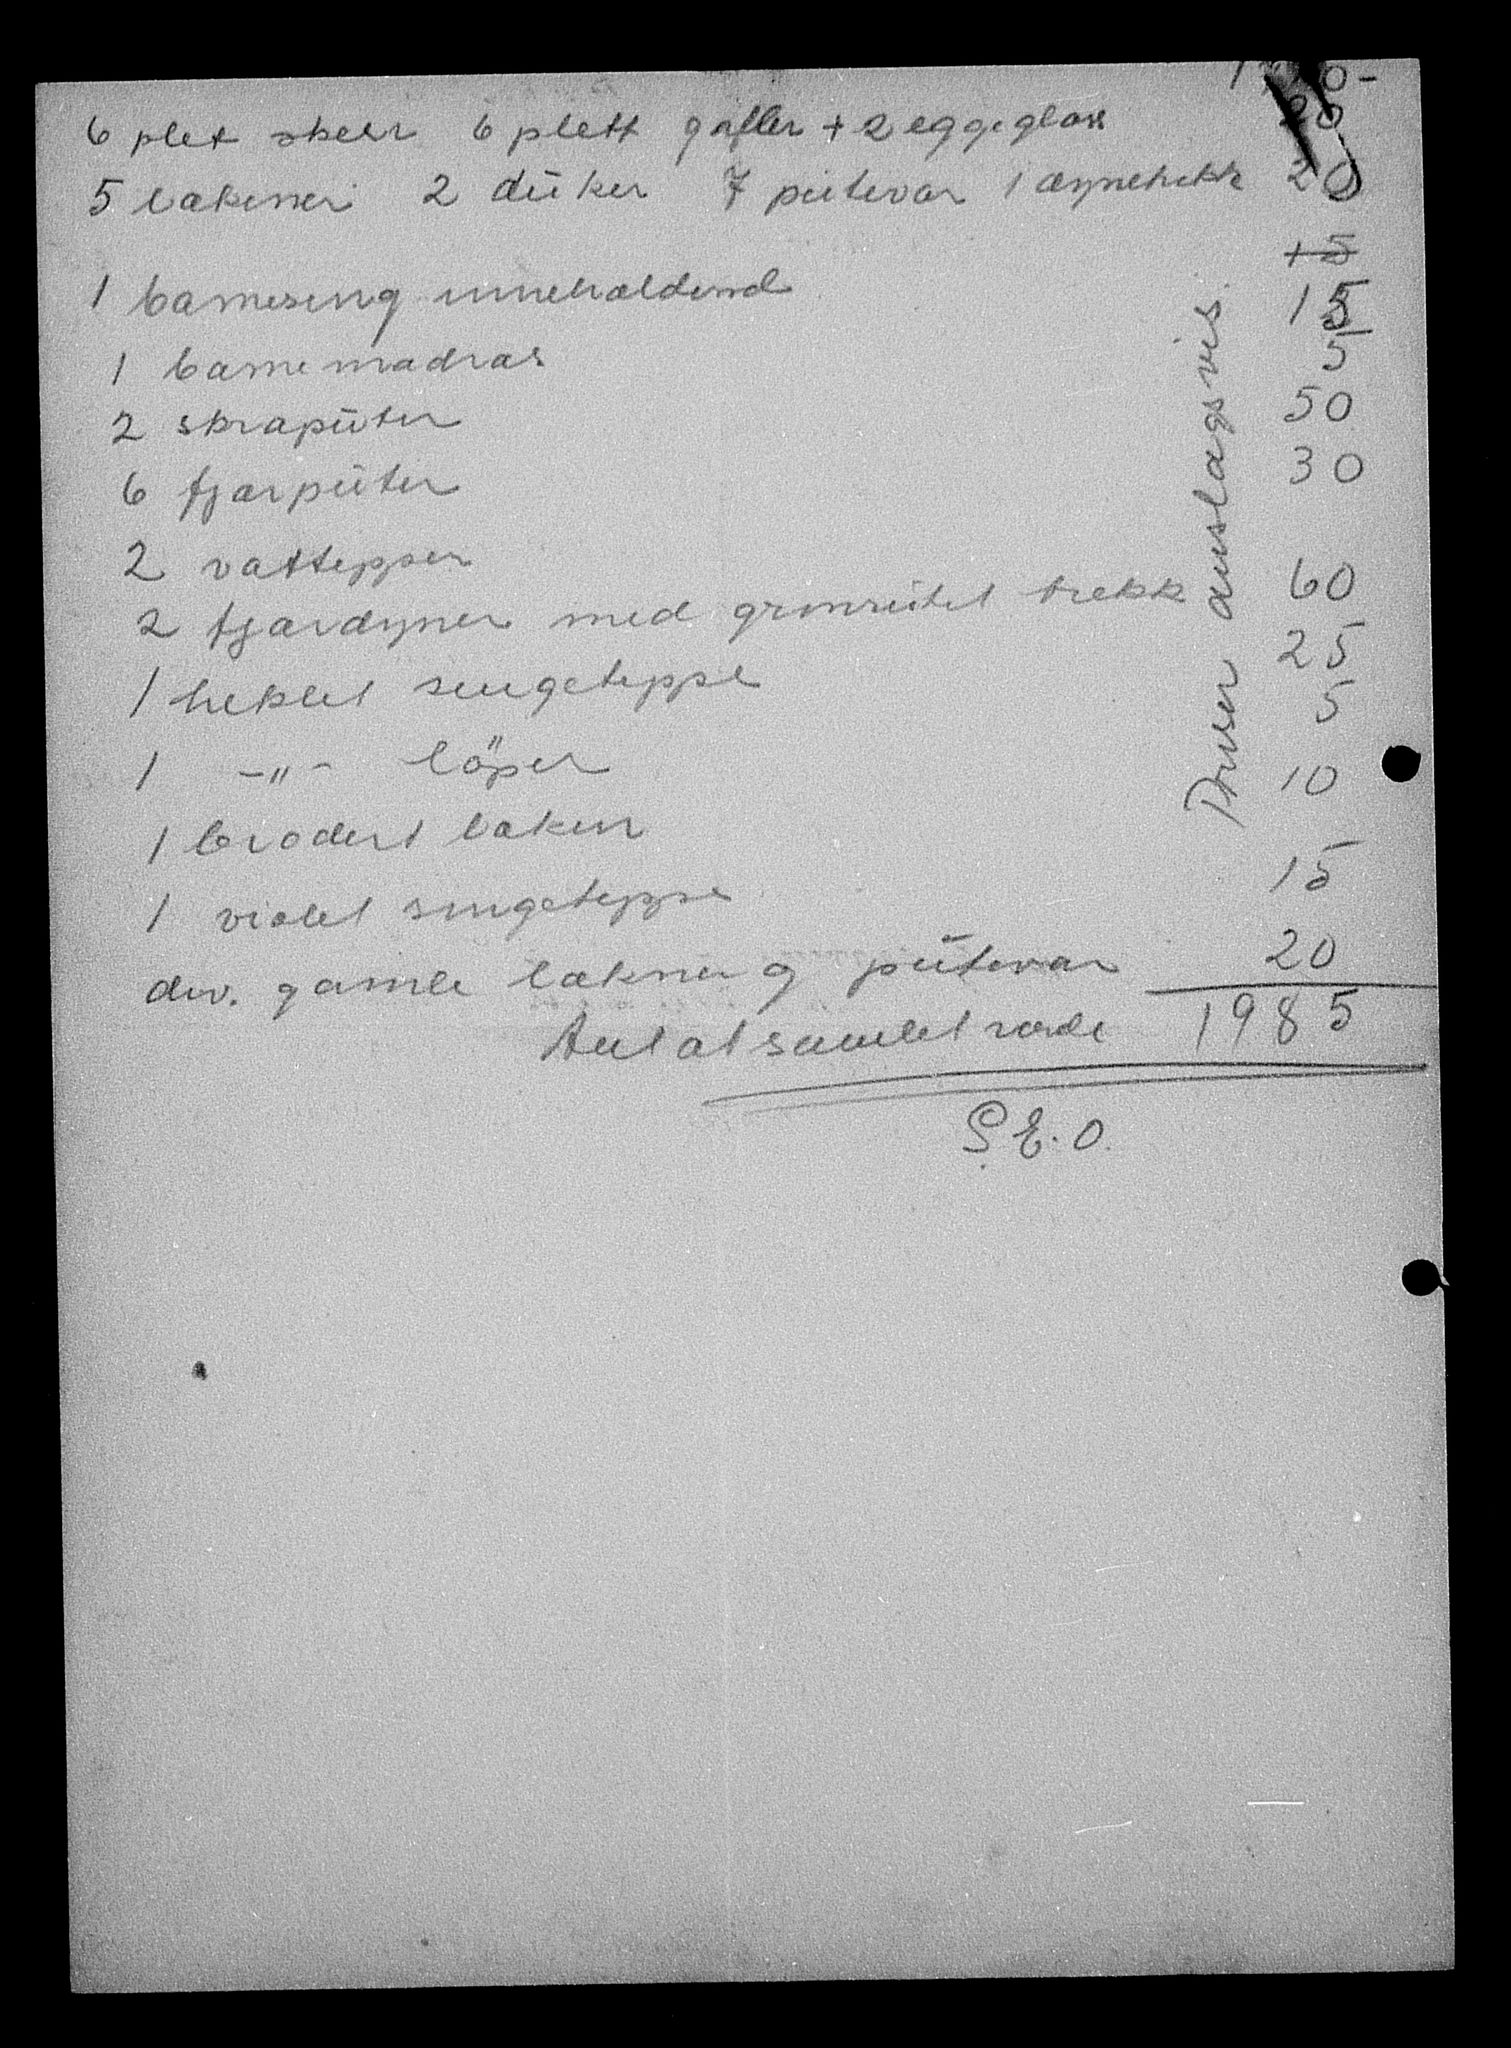 6 plet skeer 6 plett gafler + 2 eggeglass 20
5 lakener 2 düker 7 pütevar 1 dynetrekk 20
+5
1 barneseng inneholdend 15
1 barnemadras 5
2 skrapüter 50
6 fjærpüter 30
2 vattepper
2 fjærdyner med grønrütet trekk 60
1 heklet sengeteppe 25
5
1 -"- löper
10
1 brodert laken
15
1 violet sengeteppe
div. gamle lakner og pütevar 20
Antat samlet værdi 1985
S.E.O.
Prisen anslagsvis.